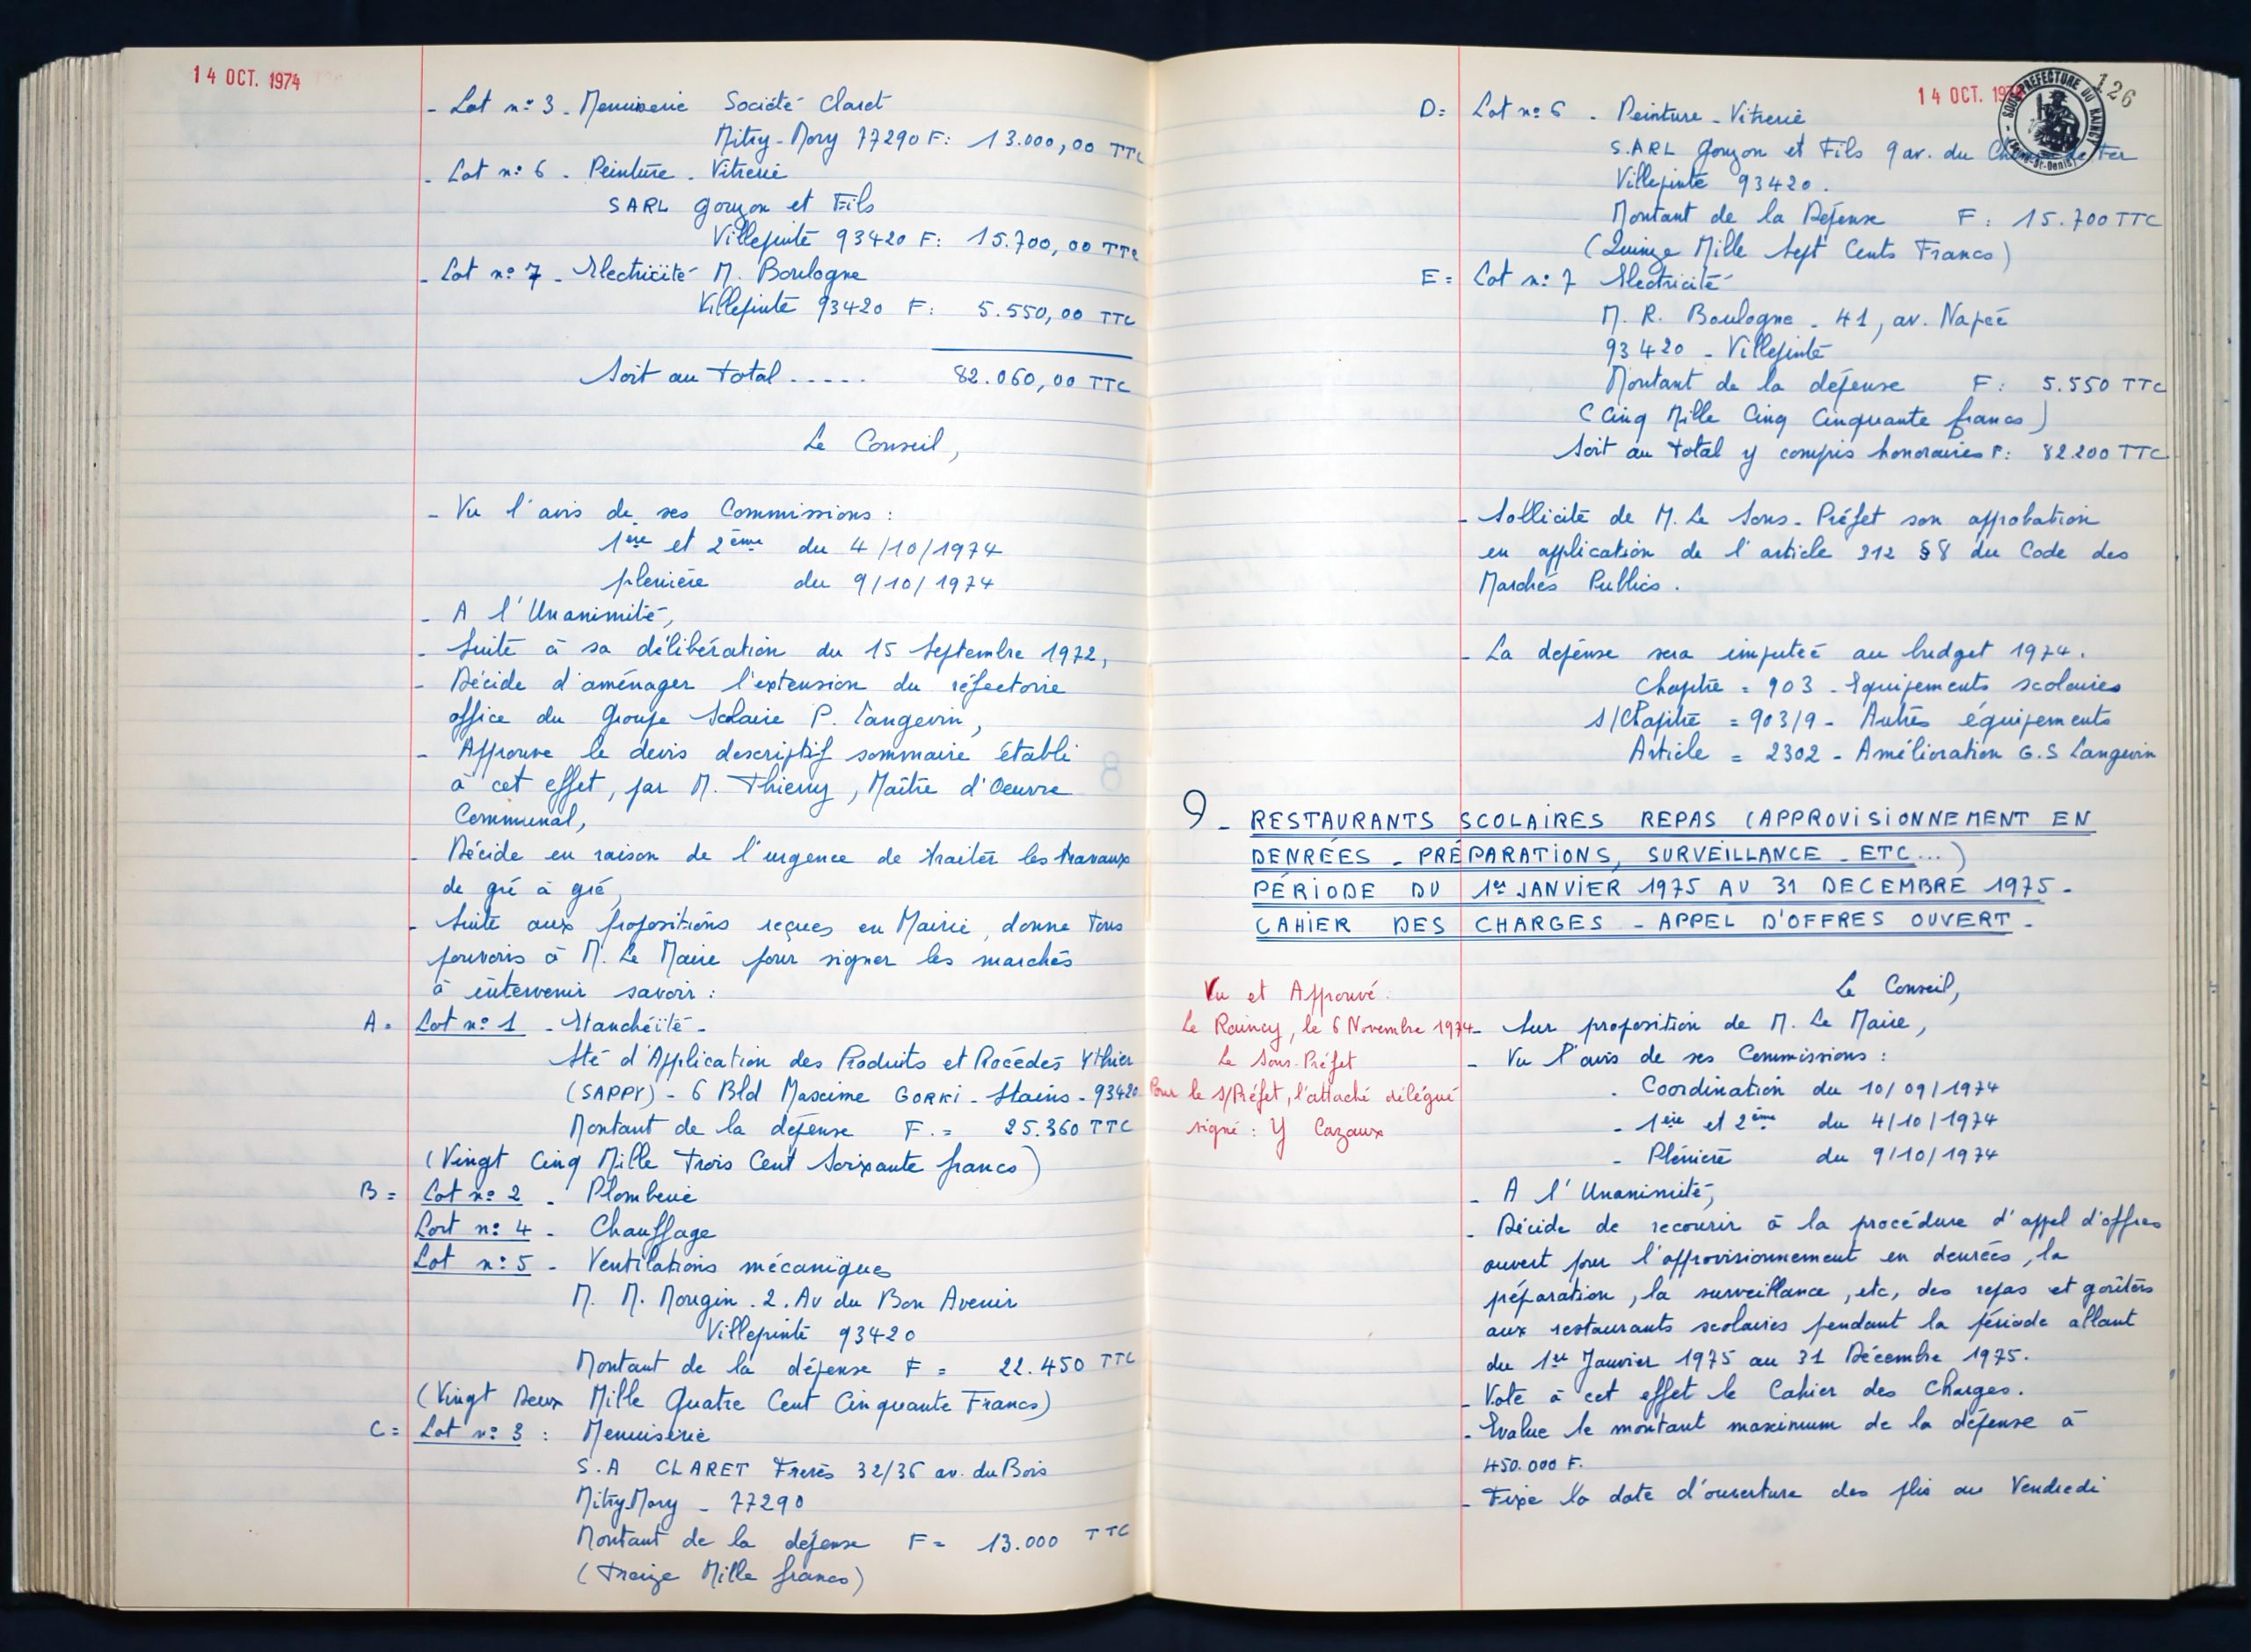 14 OCT. 1974
- Lot n° 3 - Menuiserie Société Claret
Mitry-Mory 77290 F: 13.000,00 TTC
- Lot n° 6 - Peinture - Vitrerie
SARL Gouzon et Fils
Villepinte 93420 F: 15.700,00 TTC
- Lot n° 7 - Electricité M. Boulogne
Villepinte 93420 F: 5.550,00 TTC
Soit au total ..... 82.060,00 TTC
Le Conseil,
- Vu l'avis de ses Commissions :
1ère et 2ème du 4/10/1974
plenière du 9/10/1974
- A l'Unanimité,
- Suite à sa délibération du 15 Septembre 1972,
- Décide d'aménager l'extension du réfectoire
office du Groupe Scolaire P. Langevin,
- Approuve le devis descriptif sommaire établi
à cet effet, par M. Thierry, Maître d'Oeuvre
Communal,
- Décide en raison de l'urgence de traiter les travaux
de gré à gré,
- Suite aux propositions reçues en Mairie, donne tous
pouvoirs à M. Le Maire pour signer les marchés
à intervenir savoir :
A = Lot n° 1 - Etanchéité -
Sté d'Application des Produits et Procédés Ythier
(SAPPY) - 6 Bld Maxime GORKI - Stains - 93420
Montant de la dépense F. = 25.360 TTC
(Vingt Cinq Mille Trois Cent Soixante francs)
B = Lot n° 2 - Plomberie
Lort n° 4 - Chauffage
Lot n° 5 - Ventilations mécaniques
M. M. Mougin . 2 . Av du Bon Avenir
Villepinte 93420
Montant de la dépense F = 22.450 TTC
(Vingt Deux Mille Quatre Cent Cinquante Francs)
C = Lot n° 3 : Menuiserie
S.A CLARET Freres 32/36 av. du Bois
Mitry-Mory - 77290
Montant de la dépense F = 13.000 TTC
(Treize Mille francs)
14 OCT. 197
126
SOUS-PREFECTURE DU RAINCY
(Seine-St-Denis)
D = Lot n° 6 - Peinture - Vitrerie
S.ARL Gouzon et Fils 9 av. du Fer
Villepinte 93420.
Montant de la Dépense F: 15.700 TTC
(Quinze Mille Sept Cents Francs)
E = Lot n° 7 Electricité
M. R. Boulogne - 41, av. Napée
93420 - Villepinte
Montant de la dépense F: 5.550 TTC
(Cinq Mille Cinq Cinquante francs)
Soit au total y compris honoraires F: 82.200 TTC
- Sollicite de M. Le Sous-Préfet son approbation
en application de l'article 312 §8 du Code des
Marchés Publics.
- La dépense sera imputée au budget 1974.
Chapitre = 903 - Equipements scolaires
S/Chapitre = 903/9 - Autres équipements
Article = 2302 - Amélioration G.S Langevin
9 - RESTAURANTS SCOLAIRES REPAS (APPROVISIONNEMENT EN
DENRÉES - PRÉPARATIONS, SURVEILLANCE - ETC...)
PÉRIODE DU 1er JANVIER 1975 AU 31 DECEMBRE 1975 -
CAHIER DES CHARGES - APPEL D'OFFRES OUVERT -
Vu et Approuvé.
Le Raincy, le 6 Novembre 1974
Le Sous-Préfet
Pour le S/Préfet, l'attaché délégué
signé : Y Cazaux
Le Conseil,
- Sur proposition de M. Le Maire,
- Vu l'avis de ses Commissions :
- Coordination du 10/09/1974
- 1ère et 2ème du 4/10/1974
- Plénière du 9/10/1974
- A l'Unanimité,
- Décide de recourir à la procédure d'appel d'offres
ouvert pour l'approvisionnement en denrées, la
préparation, la surveillance, etc, des repas et goûters
aux restaurants scolaires pendant la période allant
du 1er Janvier 1975 au 31 Décembre 1975.
- Vote à cet effet le Cahier des Charges.
- Evalue le montant maximum de la dépense à
450.000 F.
- Fixe la date d'ouverture des plis au Vendredi